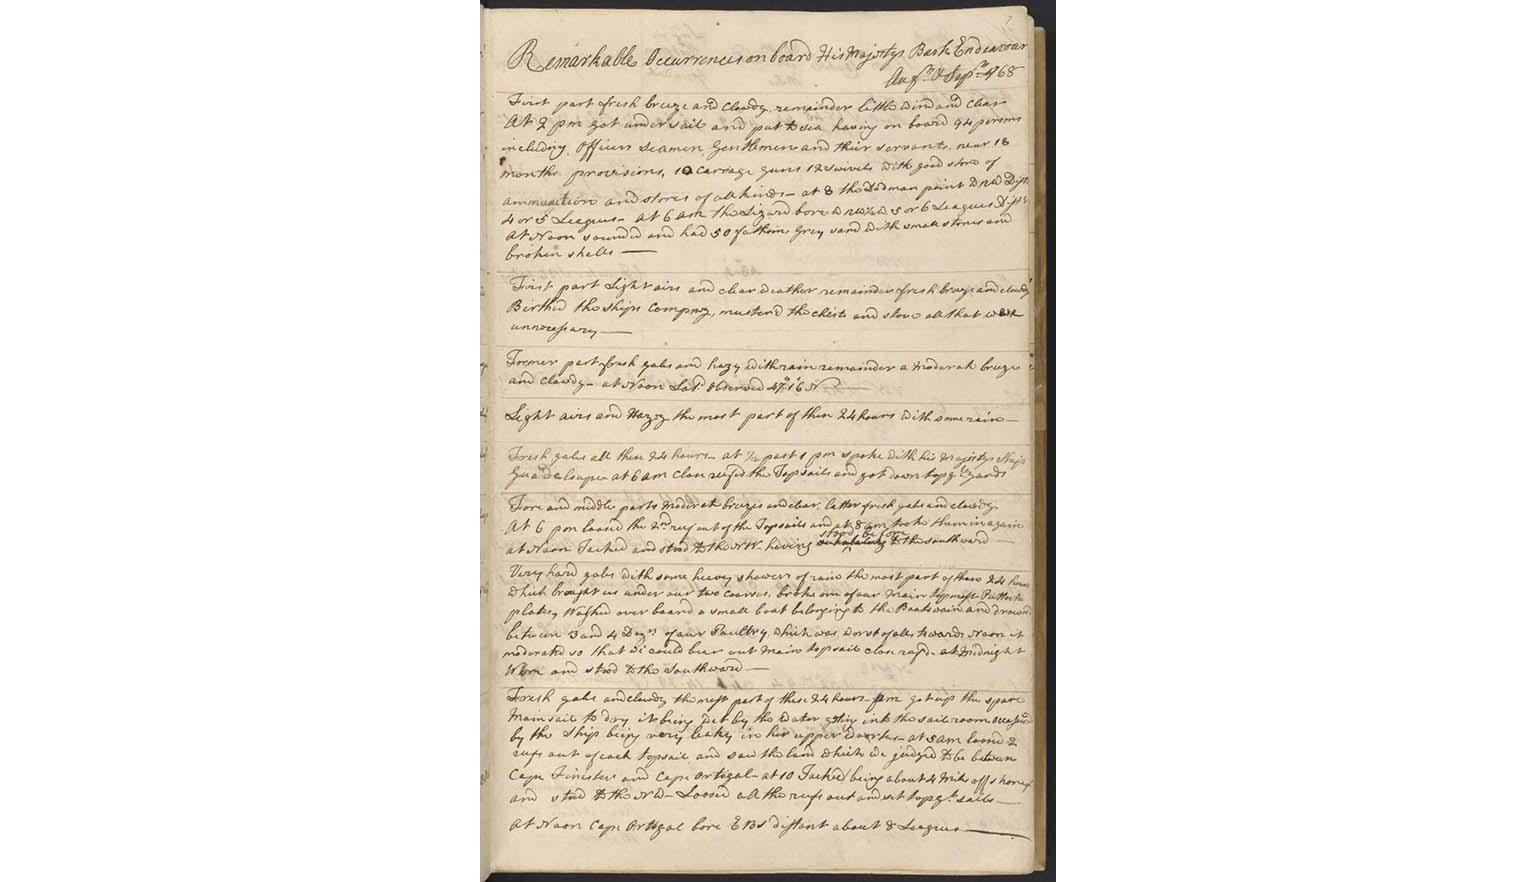 Remarkable Occurrences on board His Majestys Bark Endeavour
Augt. & Sepr. 1768
First part fresh breeze and Cloudy remainder little wind and Clear
At 2 pm got under sail and put to sea having on board 94 persons
including Officers Seamen Gentlemen and their servants, near 18
months provisions, 10 Carriage guns 12 swivels with good store of
ammunition and stores of all kinds - at 8 the Dodman point WNW Dist
4 or 5 Leagues - at 6 am the Lizard bore WNW½W 5 or 6 Leagues Dist
At Noon sounded and had 50 fathom Grey sand with small stones and
broken shells —
First part Light airs and clear weather remainder fresh breeze and cloudy
Birthed the Ships Company, musterd the chests and stove all that were
unnecessary —
Former part fresh gales and hazy with rain remainder a Moderate breeze
and cloudy - at Noon Latd. observed 47°.16' N —
Light airs and Hazey the most part of these 24 hours with some rain —
Fresh gales all these 24 hours - at ½ past 1 pm spoke with his Majestys Ship
Guadeloupe - at 6 am Close reefd the Topsails and got down topgt yards
Fore and middle parts Moderate breezes and clear, latter fresh gales and cloudy
At 6 pm loosed the 2nd reef out of the Topsails and at 8 am took them in again
at Noon Tacked and stood to the NW having stood before to the southward —
Very hard gales with some heavy showers of rain the most part of these 24 hours
which brought us under our two Courses, broke one of our Main topmast Puttock
plates, Washed over board a small boat belonging to the Boatswain and drown'd
between 3 and 4 Dozn. of our Poultry which was worst of all, towards Noon it
moderated so that we could bear out Main topsail close reefd - at Midnight
Wore and stood to the Southward —
Fresh gales and cloudy the most part of these 24 hours - pm got up the spare
Mainsail to dry it being Wet by the Water geting into the sail room occasiond
by the Ship being very leaky in her upper works - at 5 am loosed 2
reefs out of each topsail and saw the land which we judged to be between
Cape Finister and Cape Ortegal - at 10 Tacked being about 4 Miles off shore
and stood to the NW - Loosed all the reefs out and set topgt. sails —
At Noon Cape Ortegal bore EBS distant about 8 Leagues —